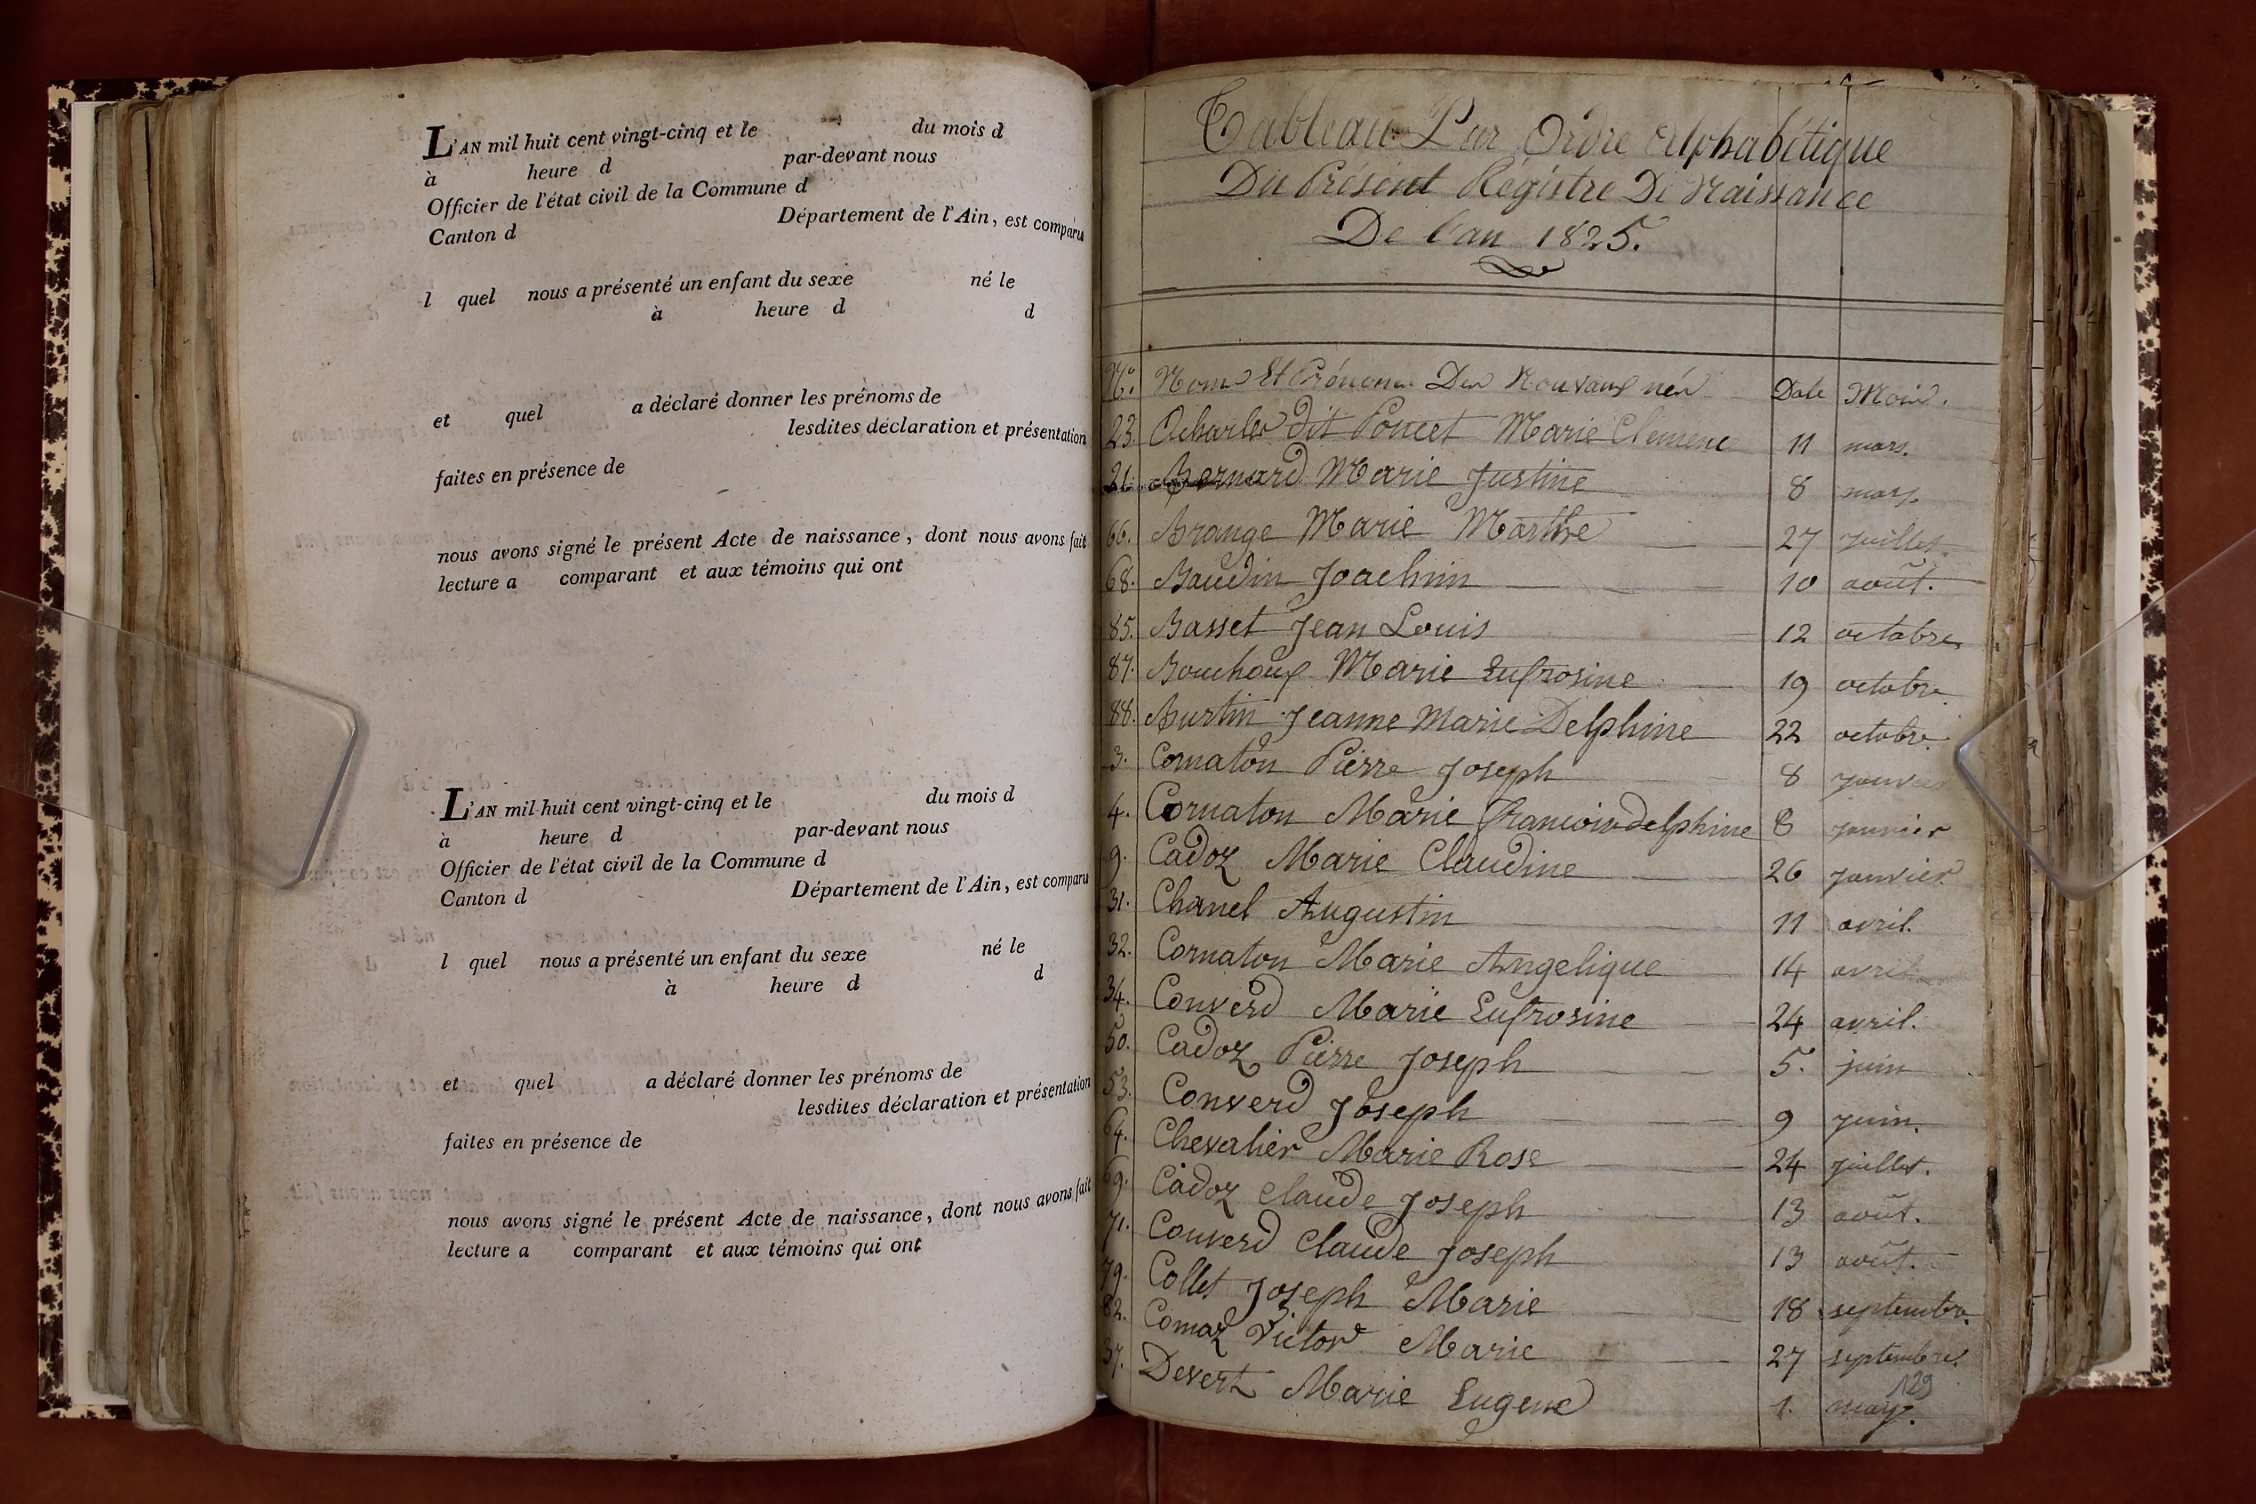 L'AN mil huit cent vingt-cinq et le du mois d
à heure d par-devant nous
Officier de l'état civil de la Commune d
Canton d Département de l'Ain, est comparu
l quel nous a présenté un enfant du sexe né le
à heure d d
et quel a déclaré donner les prénoms de
lesdites déclaration et présentation
faites en présence de
nous avons signé le présent Acte de naissance, dont nous avons fait
lecture a comparant et aux témoins qui ont
L'AN mil huit cent vingt-cinq et le du mois d
à heure d par-devant nous
Officier de l'état civil de la Commune d
Canton d Département de l'Ain, est comparu
l quel nous a présenté un enfant du sexe né le
à heure d d
et quel a déclaré donner les prénoms de
lesdites déclaration et présentation
faites en présence de
nous avons signé le présent Acte de naissance, dont nous avons fait
lecture a comparant et aux témoins qui ont
Tableau Par Ordre Alphabétique
Du Présent Régistre De Naissance
De l'an 1825.
N.º Noms Et Prénoms Des Nouvaux nés Date Mois.
23. dit Poncet Marie Clemence 11 mars.
21. Bernard Marie Justine 8 mars.
66. Brange Marie Marthe 27 juillet.
68. Baudin Joachim 10 août.
85. Basset Jean Louis 12 octobre.
87. Bouchoux Marie Eufrosine 19 octobre.
88. Burtin Jeanne Marie Delphine 22 octobre.
3. Cornaton Pierre Joseph 8 janvier
4. Cornaton Marie Francoise delphine 8 janvier
9. Cadoz Marie Claudine 26 janvier.
31. Chanel Augustin 11 avril.
32. Cornaton Marie Angelique 14 avril
34. Converd Marie Eufrosine 24 avril.
50. Cadoz Pierre Joseph 5. juin
53. Converd Joseph 9 juin.
64. Chevalier Marie Rose 24 juillet.
69. Cadoz Claude Joseph 13 août.
71. Converd Claude Joseph 13 août.
79. Collet Joseph Marie 18 septembre.
82. Comaz Victor Marie 27 septembre.
37. Devert Marie Eugene 1. may.
129